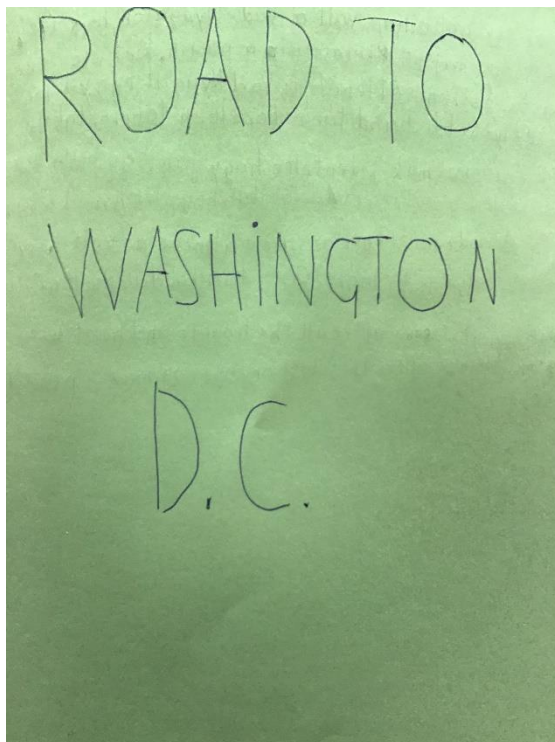 ROAD TO
WASHiNGTON
D.C.